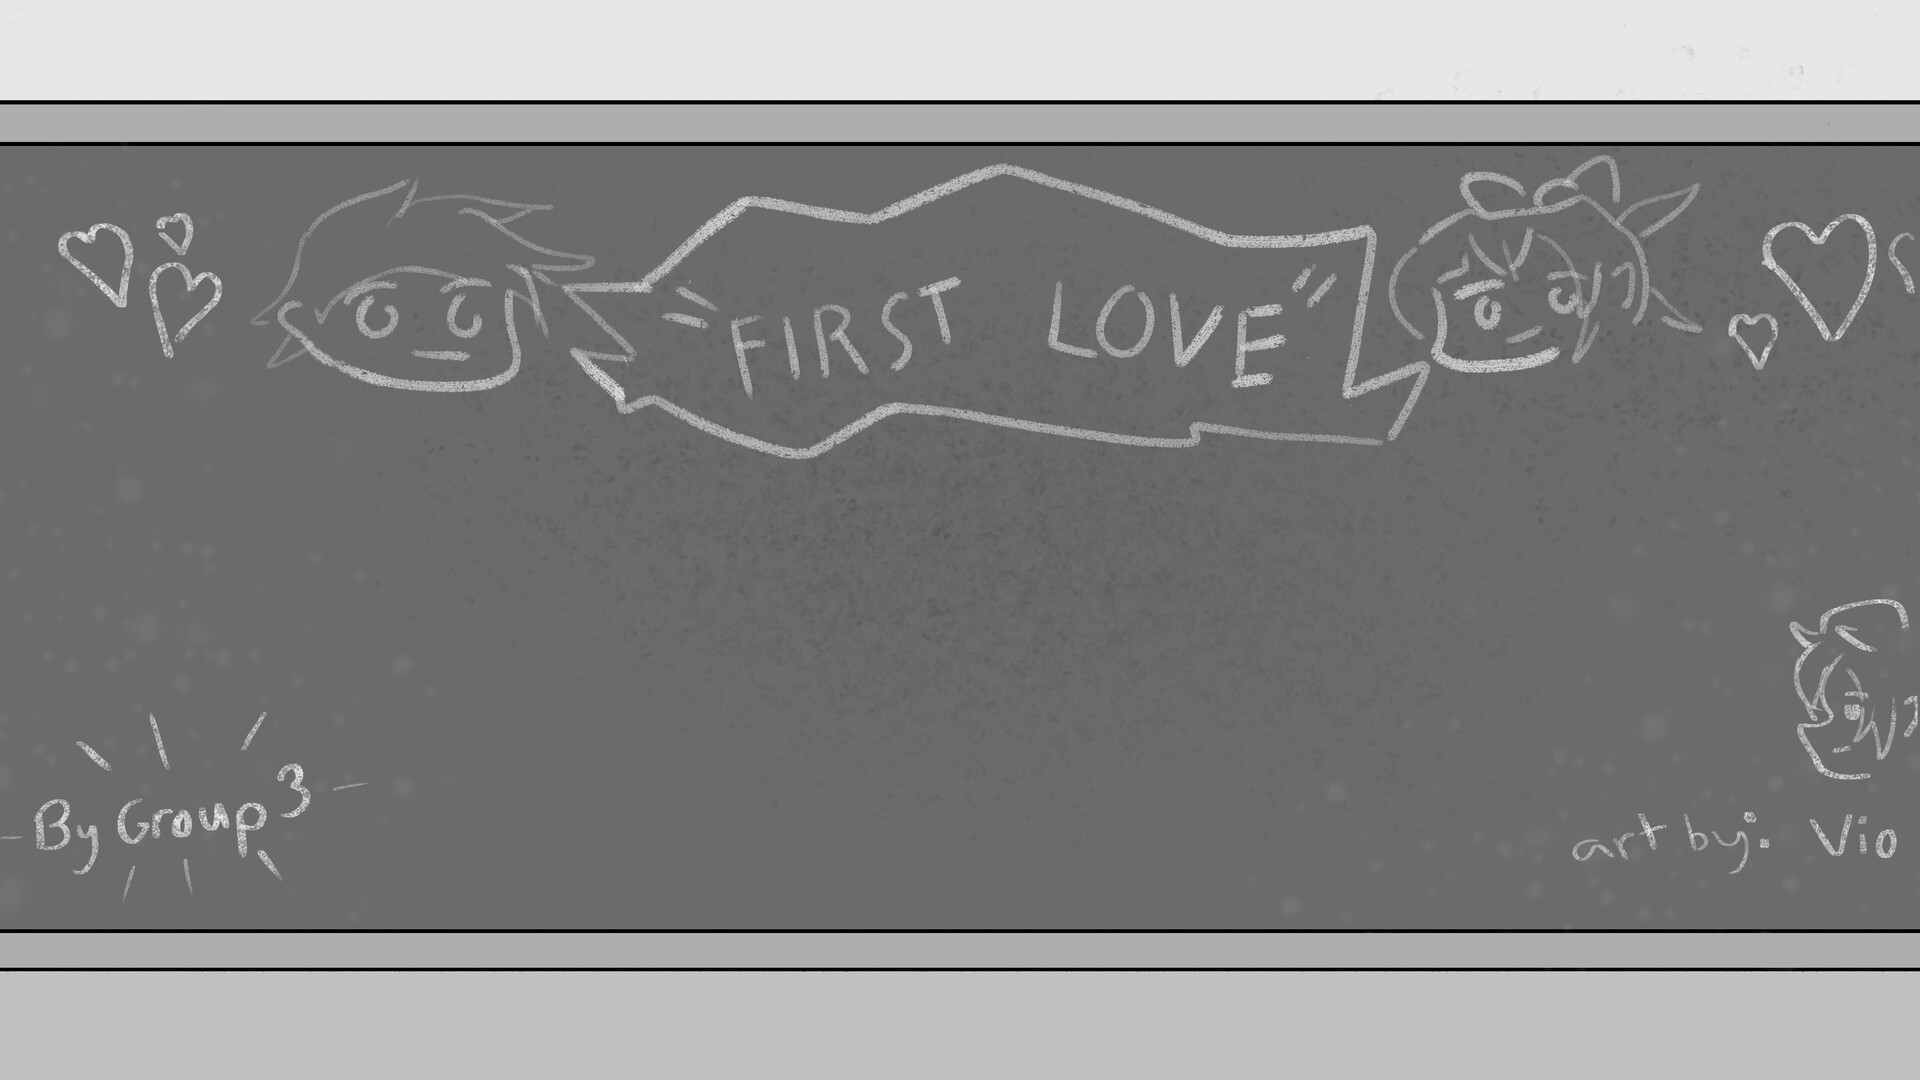 "FIRST LOVE"
By Group 3
art by: Vio